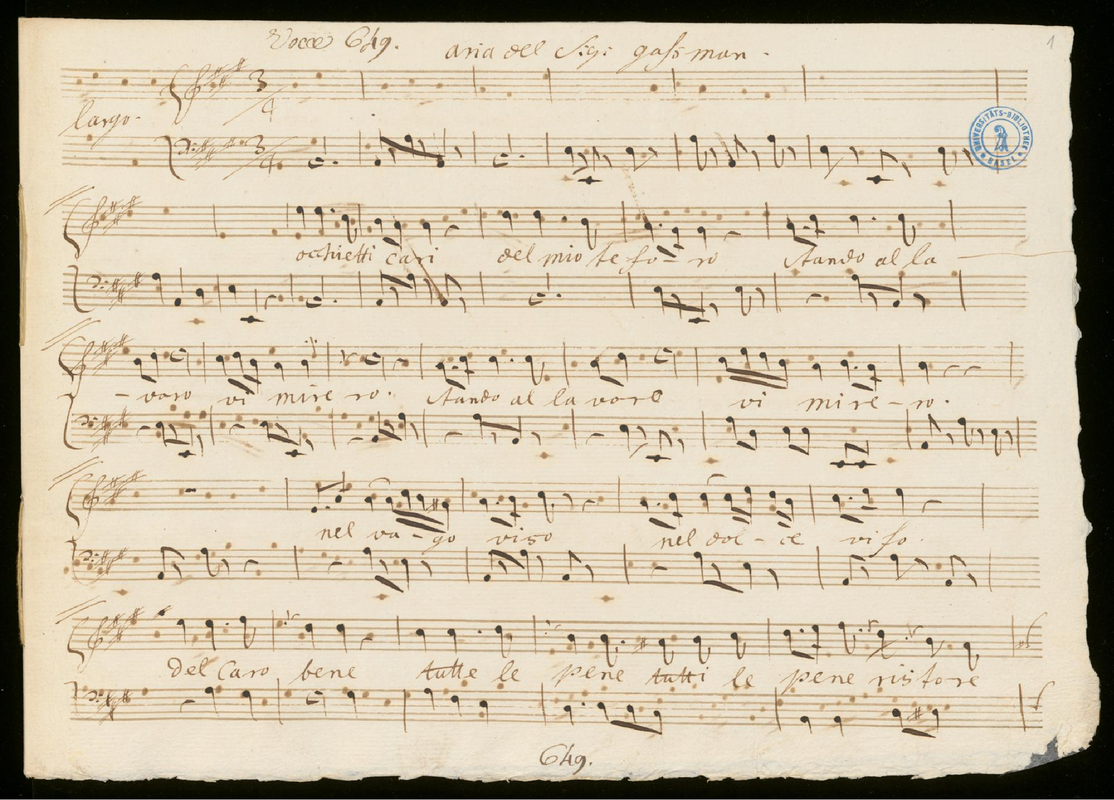 Vocce 649. aria del Sig: gassman.
1
largo.
3/4
3/4
UNIVERSITÄTS-BIBLIOTHEK BASEL
occhietti cari del mio teso-ro stando al la -
- voro vi mire ro. stando al la voro vi mire-ro.
nel va-go viso nel dol-ce viso.
del caro bene tutte le pene tutti le pene ristore
649.